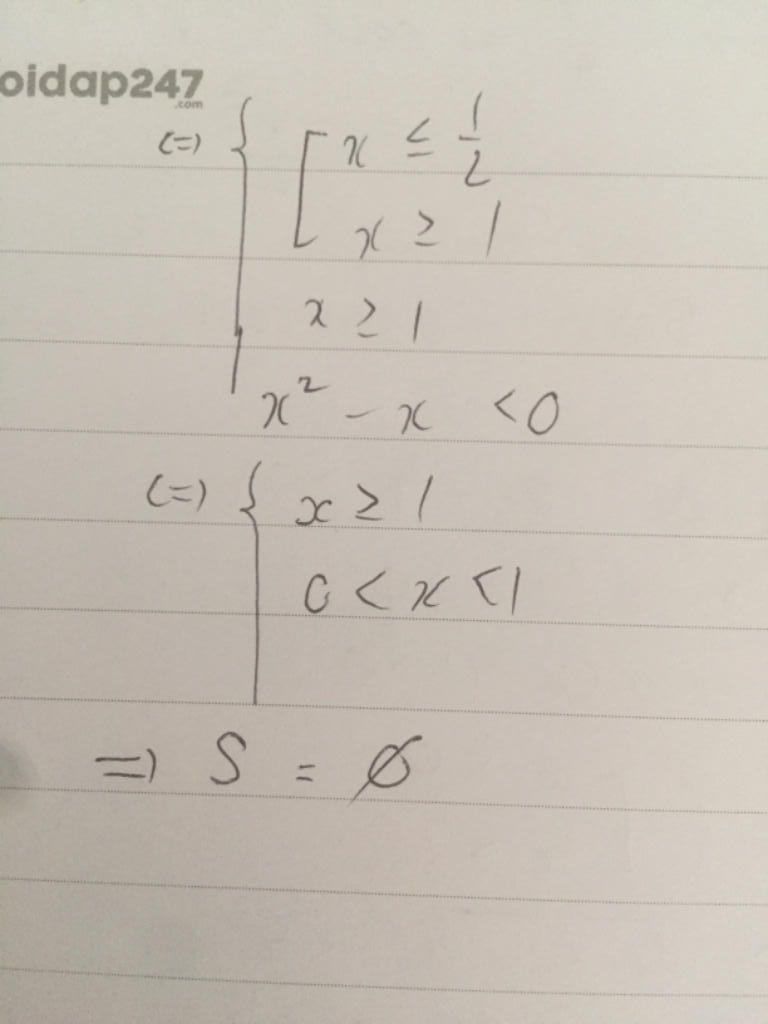 oidap247
.com
(=) { [ x ≤ 1/2
x ≥ 1
x ≥ 1
x² - x < 0
(=) { x ≥ 1
0 < x < 1
=) S = ∅